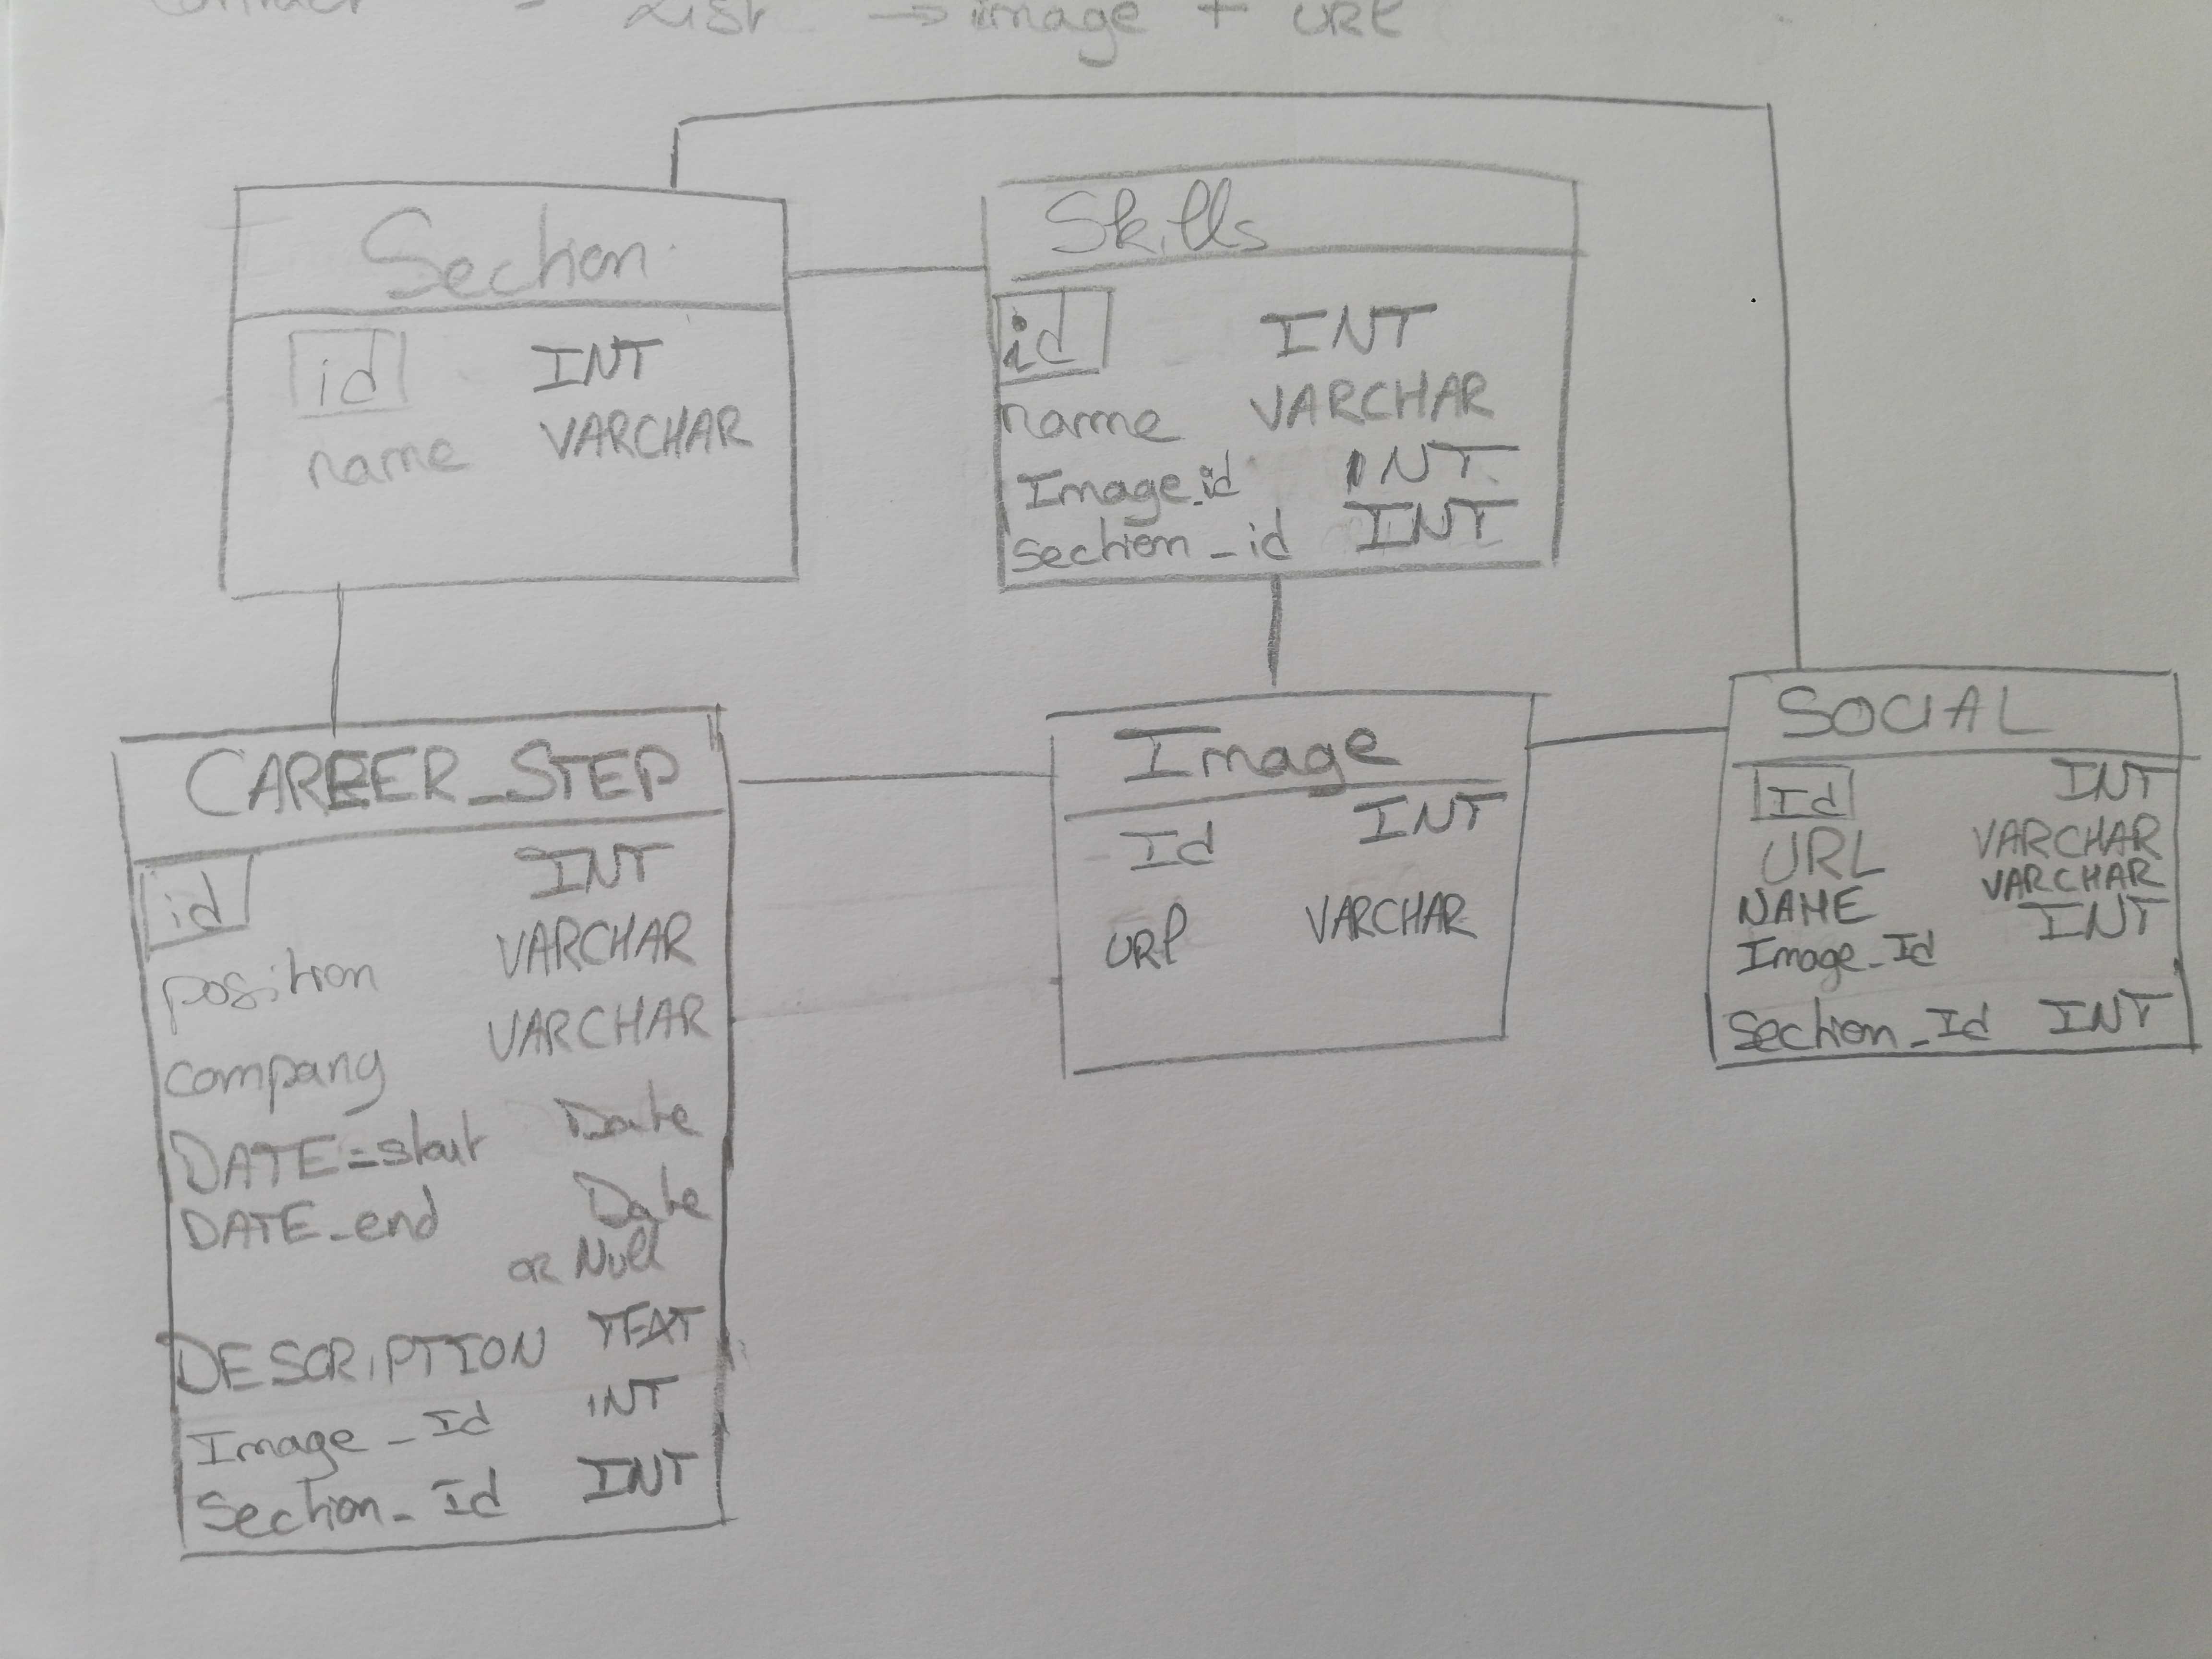 List → image + URL
Section
id INT
name VARCHAR
Skills
id INT
name VARCHAR
Image_id INT
section_id INT
CAREER_STEP
id INT
position VARCHAR
company VARCHAR
DATE_start Date
DATE_end Date
or Null
DESCRIPTION TEXT
Image_Id INT
Section_Id INT
Image
Id INT
URl VARCHAR
SOCIAL
Id INT
URL VARCHAR
NAME VARCHAR
Image_Id INT
Section_Id INT